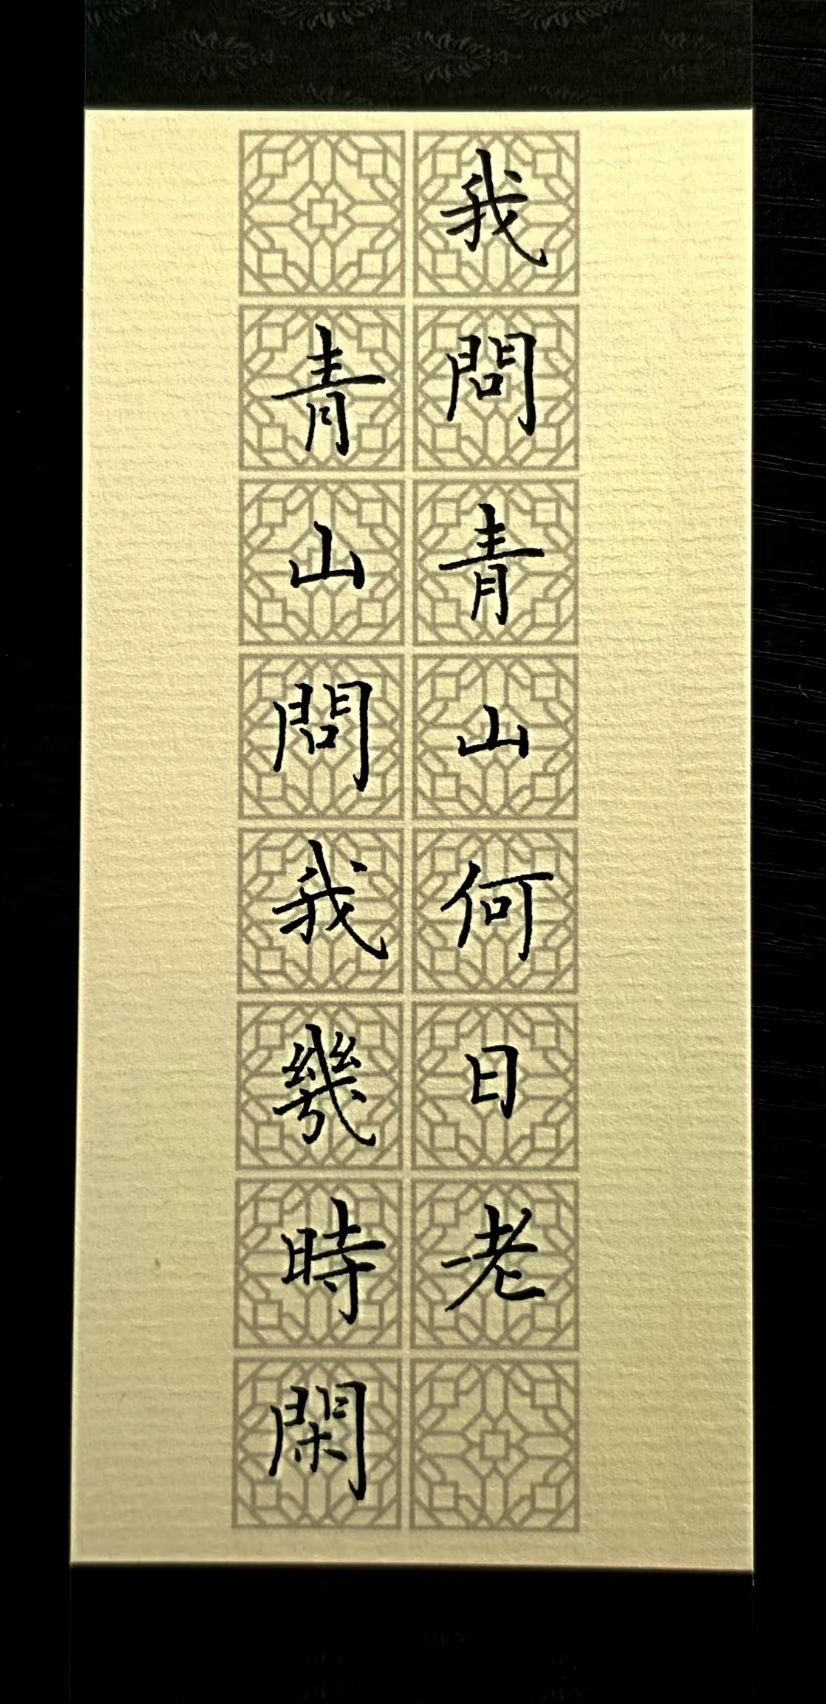 我問青山何日老
青山問我幾時閑